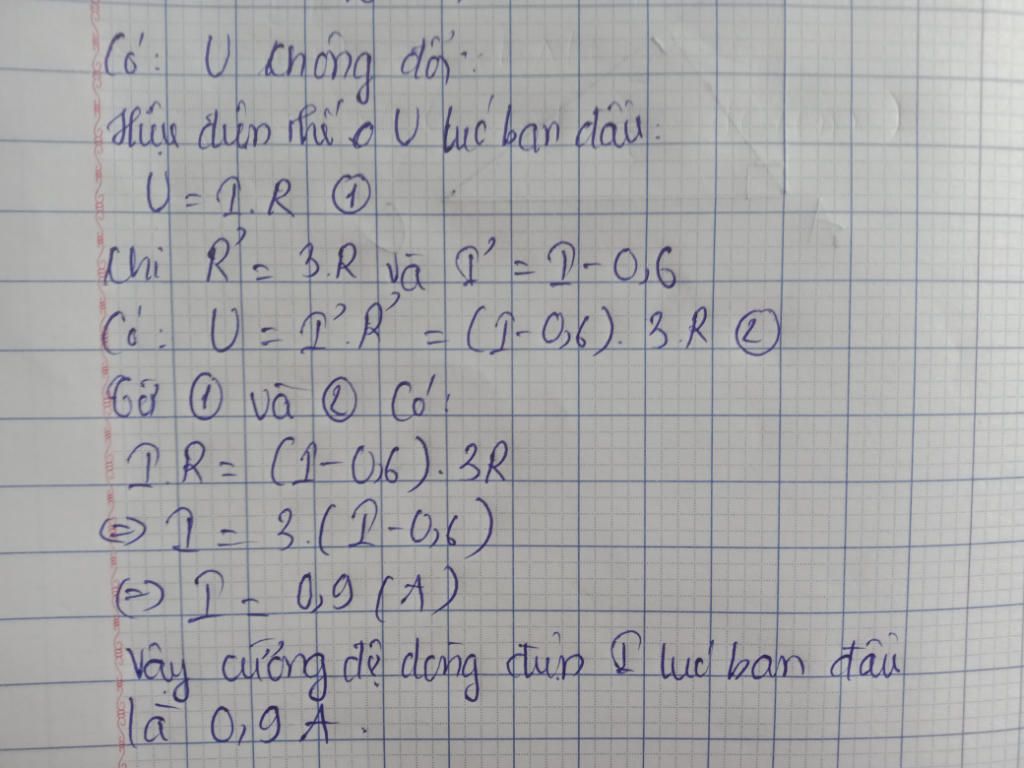 Có: U không đổi:
Hiệu điện thế U lúc ban đầu:
U = I.R ①
Khi R' = 3.R và I' = I - 0,6
Có: U = I'.R' = (I - 0,6). 3.R ②
Từ ① và ② Có:
I.R = (I - 0,6). 3R
⇔ I = 3.(I - 0,6)
⇔ I = 0,9 (A)
Vậy cường độ dòng điện I lúc ban đầu
là 0,9 A.